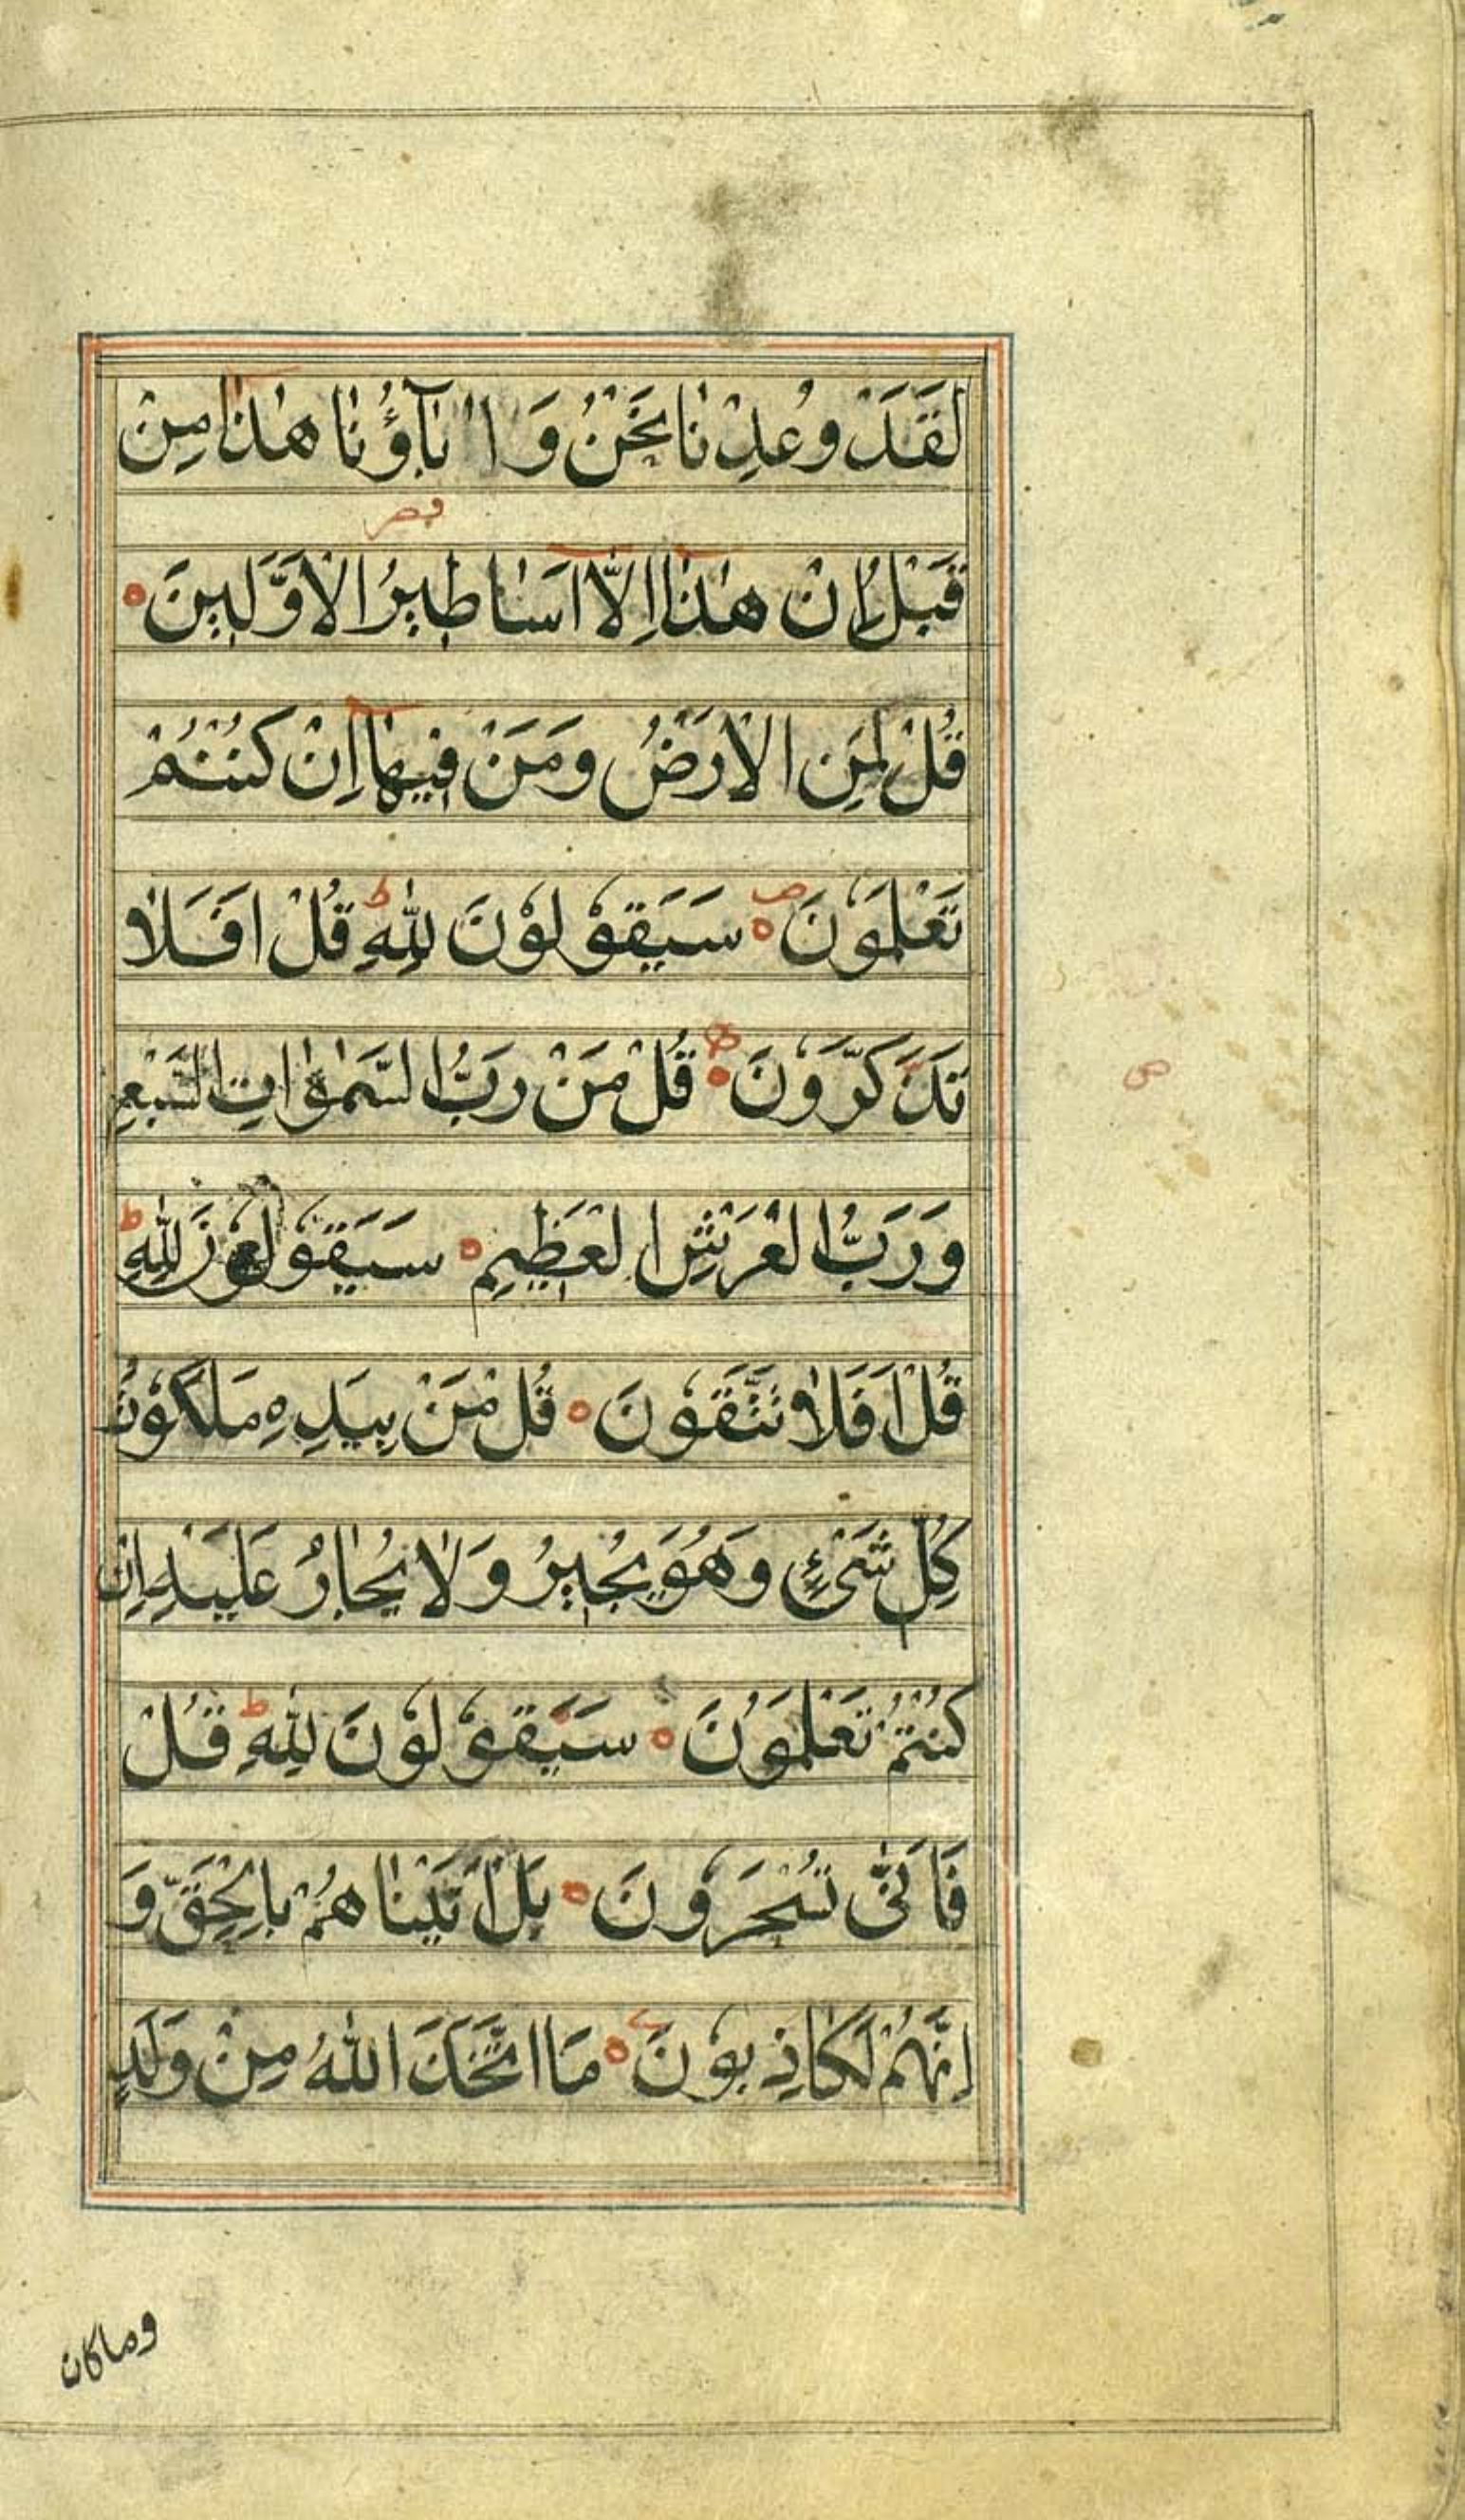 لَقَدْ وُعِدْنَا نَحْنُ وَاٰبَآؤُنَا هٰذَا مِنْ
قَبْلُ اِنْ هٰذَا اِلَّا اَسَاطِيرُ الْاَوَّلِينَ
قُلْ لِمَنِ الْاَرْضُ وَمَنْ فِيهَا اِنْ كُنْتُمْ
تَعْلَمُوْنَ سَيَقُوْلُوْنَ لِلّٰهِ قُلْ اَفَلَا
تَذَكَّرُوْنَ قُلْ مَنْ رَبُّ السَّمٰوَاتِ السَّبْعِ
وَرَبُّ الْعَرْشِ الْعَظِيمِ سَيَقُوْلُوْنَ لِلّٰهِ
قُلْ اَفَلَا تَتَّقُوْنَ قُلْ مَنْ بِيَدِهِ مَلَكُوْتُ
كُلِّ شَيْءٍ وَهُوَ يُجِيرُ وَلَا يُجَارُ عَلَيْهِ اِنْ
كُنْتُمْ تَعْلَمُوْنَ سَيَقُوْلُوْنَ لِلّٰهِ قُلْ
فَاَنّٰى تُسْحَرُوْنَ بَلْ اَتَيْنَاهُمْ بِالْحَقِّ وَ
اِنَّهُمْ لَكَاذِبُوْنَ مَا اتَّخَذَ اللّٰهُ مِنْ وَلَدٍ
وماكان